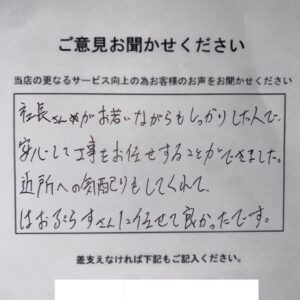 ご意見お聞かせください
当店の更なるサービス向上の為お客様のお声をお聞かせください
社長さんがお若いながらもしっかりした人で、
安心して工事をお任せすることができました。
近所への気配りもしてくれて、
はおぷらすさんに任せて良かったです。
差支えなければ下記もご記入ください。